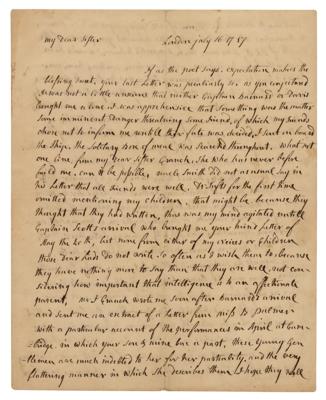 my dear sister London july 16 1787
If as the poet says, expectation makes the
blessing sweet, your last Letter was peculiarly so as you conjectured
I was not a little anxious that neither Captain Barnard or Davis
brought me a line. I was apprehensive that Something was the matter
Some imminent danger threatning Some Friend, of which my Friends
chose not to inform me untill their fate was decided, I sent on board
the Ship, the Solitary Box of meal was Searchd throughout. what not
one line, from my dear Sister Cranch, She who has never before
faild me, can it be possible, uncle Smith did not as usual say in
his Letter that all friends were well. Dr Tufts for the first time
omitted mentioning my children, that might be because they
thought that they had written, thus was my mind agitated untill
Captain Scotts arrival who brought me your kind Letter of
May the but none from either of my Neices or Children
those dear Lads do not write So often as I wish them to because
they have nothing more to Say than that they are well, not con
sidering how important that intelligence is to an affectionate
parent, mr J Cranch wrote me soon after Barnards arrival
and Sent me an extract of a Letter from miss B Palmer
with a particular account of the performances in April at Cam
bridge, in which your son & mine bore a part, these young Gen
tlemen are much indebted to her for her partiality, and the very
flattering manner in which She describes them I hope they will